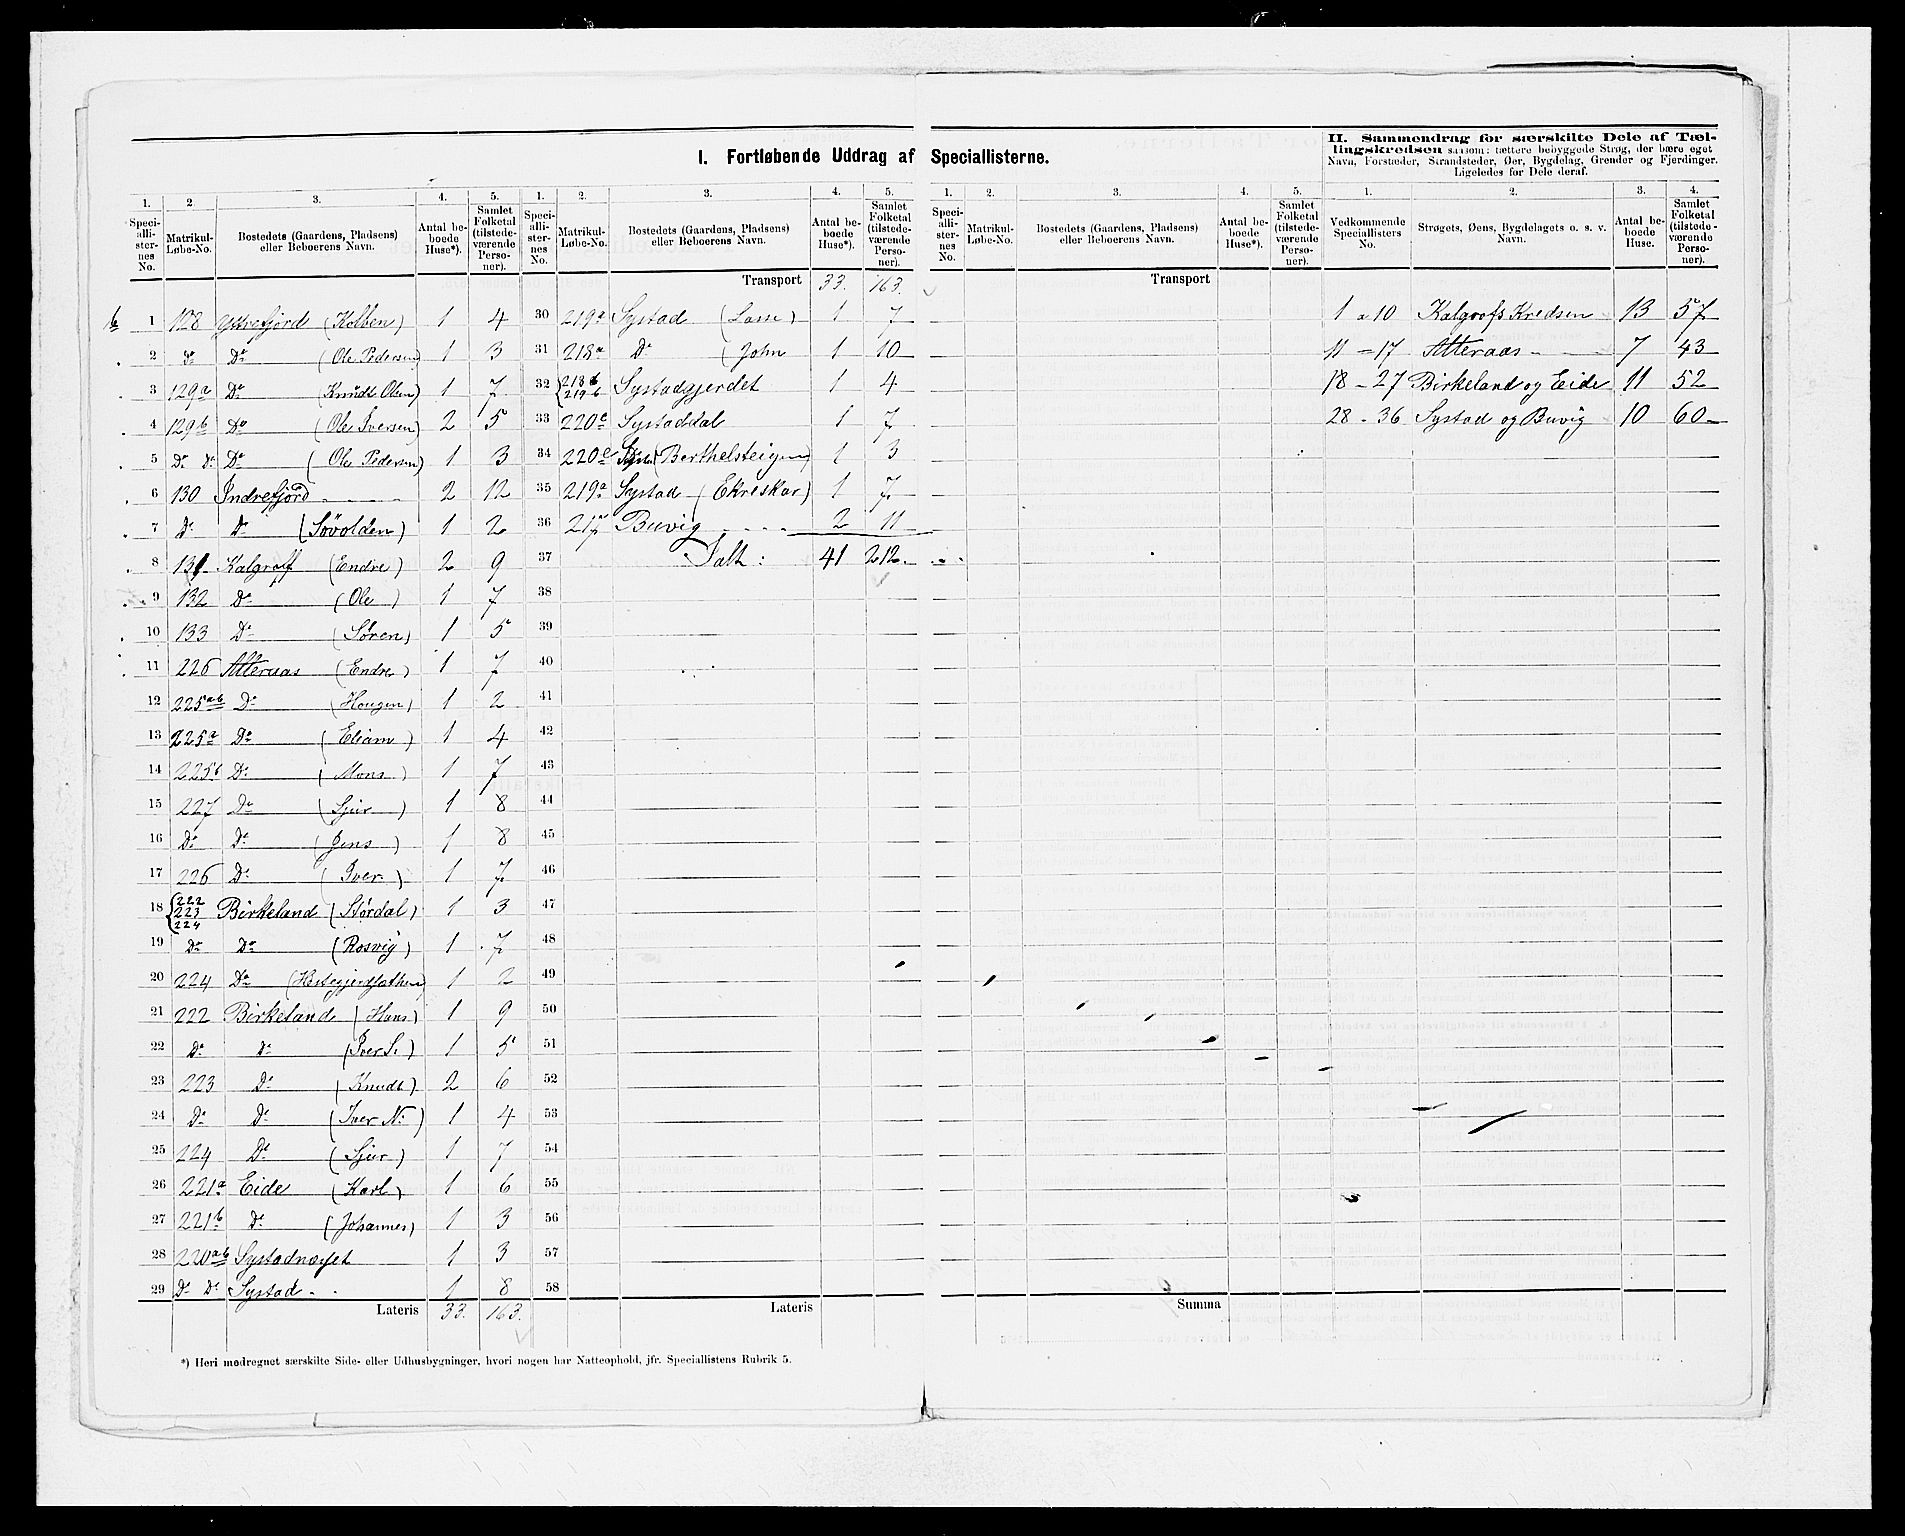 I. Fortløbende Uddrag af Speciallisterne.
II. Sammendrag for særskilte Dele af Tællingskredsen saasom: tættere bebyggede Strøg, der bære eget
Navn, Forstæder, Strandsteder, Øer, Bygdelag, Grender og Fjerdinger.
Ligeledes for Dele deraf.
1. 2. 3. 4. 5. 1. 2. 3. 4. 5. 1. 2. 3. 4. 5. 1. 2. 3. 4.
Speciallisternes No. Matrikul-Løbe-No. Bostedets (Gaardens, Pladsens) eller Beboerens Navn. Antal beboede Huse*). Samlet Folketal (tilstedeværende Personer).
Speciallisternes No. Matrikul-Løbe-No. Bostedets (Gaardens, Pladsens) eller Beboerens Navn. Antal beboede Huse*). Samlet Folketal (tilstedeværende Personer).
Speciallisternes No. Matrikul-Løbe-No. Bostedets (Gaardens, Pladsens) eller Beboerens Navn. Antal beboede Huse*). Samlet Folketal (tilstedeværende Personer).
Vedkommende Speciallisters No. Strøgets, Øens, Bygdelagets o. s. v. Navn. Antal beboede Huse. Samlet Folketal (tilstedeværende Personer).
1 128 Ytrefjord (Kolben) 1 4
2 do Do (Ole Pedersen) 1 3
3 129a Do (Knudt Olsen) 1 7
4 129b Do (Ole Iversen) 2 5
5 Do Do Do (Ole Pedersen) 1 3
6 130 Indrefjord 2 12
7 Do Do (Sövolden) 1 2
8 131 Kalgraff (Endre) 2 9
9 132 Do (Ole) 1 7
10 133 Do (Søren) 1 5
11 226 Atteraas (Endre) 1 7
12 225ab Do (Hougen) 1 2
13 225a Do (Eliam) 1 4
14 225b Do (Mons) 1 7
15 227 Do (Sjur) 1 8
16 Do Do (Jens) 1 8
17 226 Do (Iver) 1 7
18 222 223 224 Birkeland (Størdal) 1 3
19 Do Do (Rosvig) 1 7
20 224 Do 1 2
21 222 Birkeland (Hans) 1 9
22 Do Do (Iver S.) 1 5
23 223 Do (Knudt) 2 6
24 Do Do (Iver N.) 1 4
25 224 Do (Sjur) 1 7
26 221a Eide (Karl) 1 6
27 221b Do (Johannes) 1 3
28 220ab 1 3
29 Do Do Systad 1 8
Lateris 33. 163.
Transport 33. 163.
30 219a Systad (Lasse) 1 7
31 218a Do (John 1 10
32 218b 219b Systadgjerdet 1 4
33 220c Systaddal 1 7
34 220c (Berthelsteigen) 1 3
35 219a Systad (Ekreskar) 1 7
36 217 Buvig 2 11
37 Ialt: 41 212
38
39
40
41
42
43
44
45
46
47
48
49
50
51
52
53
54
55
56
57
58
Lateris
Transport
Summa
1 a 10 Kalgrafs Kredsen 13 57
11 = 17 Atteraas 7 43
18 - 27 Birkeland og Eide 11 52
28 - 36 Systad og Buvig 10 60
*) Heri medregnet særskilte Side- eller Udhusbygninger, hvori nogen har Natteophold, jfr. Speciallistens Rubrik 5.